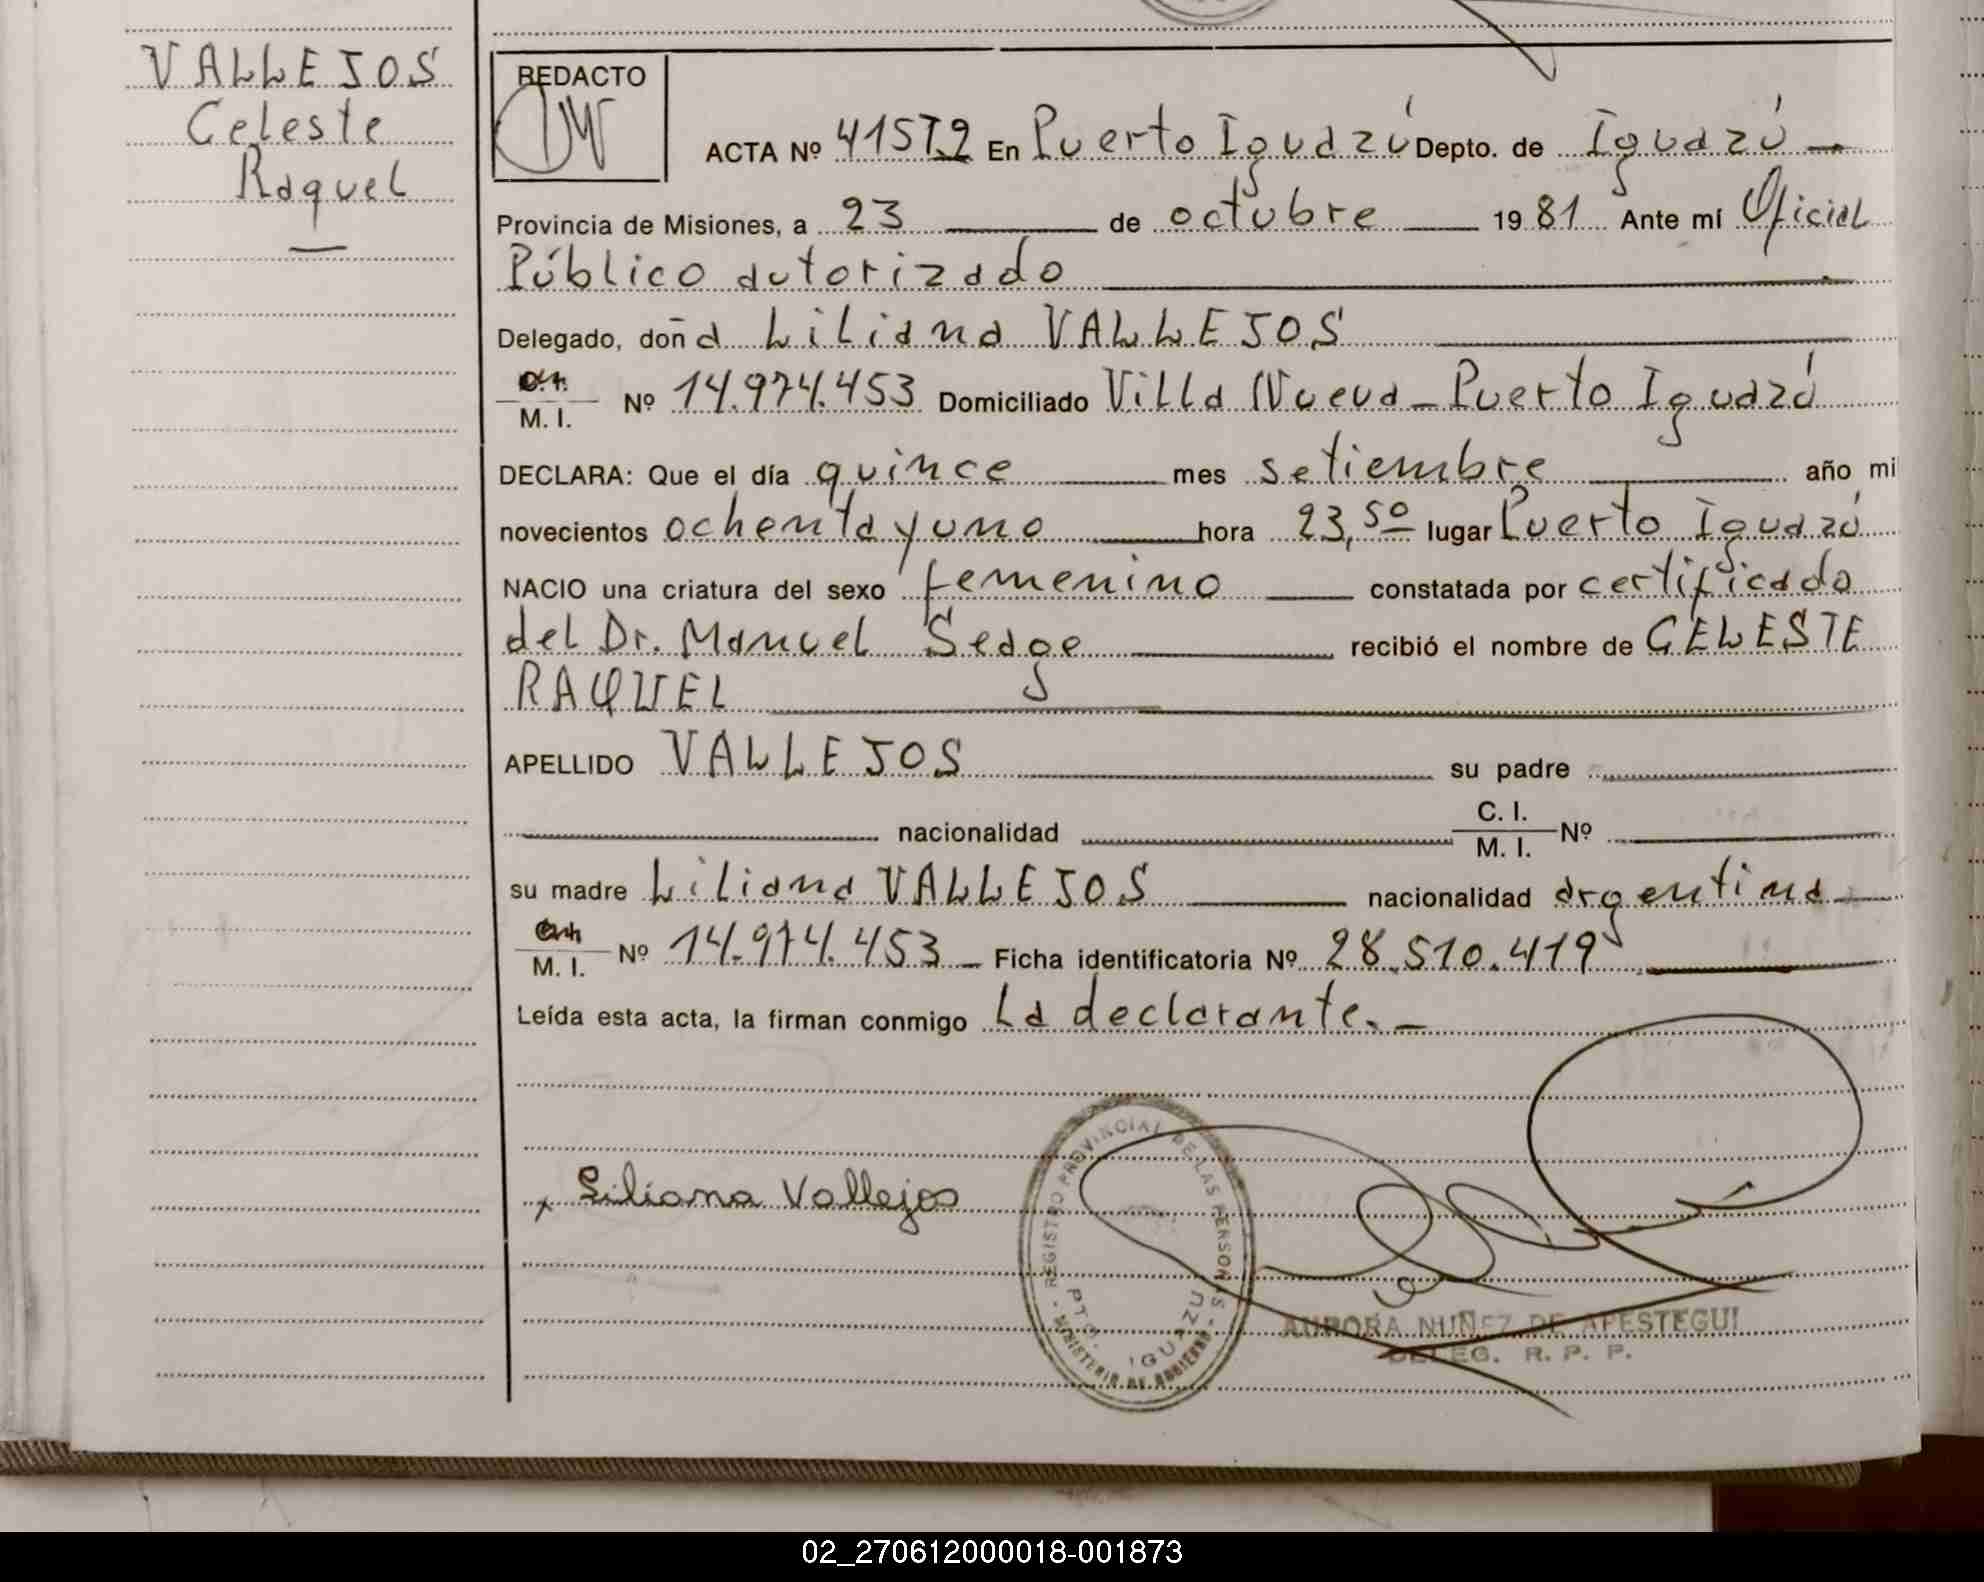 VALLEJOS
Celeste
Raquel
REDACTO
ACTA Nº 415T.2 En Puerto Iguazú Depto. de Iguazú
Provincia de Misiones, a 23 de octubre 19 81 Ante mí Oficial
Público autorizado
Delegado, doña Liliana VALLEJOS
M. I. Nº 14.974.453 Domiciliado Villa Nueva - Puerto Iguazú
DECLARA: Que el día quince mes setiembre año mi
novecientos ochenta y uno hora 23,50 lugar Puerto Iguazú
NACIO una criatura del sexo femenino constatada por certificado
del Dr. Manuel Seage recibió el nombre de CELESTE
RAQUEL
APELLIDO VALLEJOS su padre
nacionalidad C. I. M. I. Nº
su madre Liliana VALLEJOS nacionalidad argentina
M. I. Nº 14.974.453 Ficha identificatoria Nº 28.510.419
Leída esta acta, la firman conmigo La declarante.-
x Liliana Vallejos
REGISTRO PROVINCIAL DE LAS PERSONAS - MINISTERIO DE GOBIERNO
PTO. IGUAZU
AURORA NUÑEZ DE APESTEGUI
DELEG. R. P. P.
02_270612000018-001873